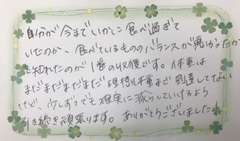 自分が今までいかに食べ過ぎて
いたのか、食べているもののバランスが悪かったか
を知れたのが1番の収穫です。体重は
まだまだまだまだ目標体重まで到達してない
けど、少しずつでも確実に減らしていけるよう
引き続き頑張ります。ありがとうございました!